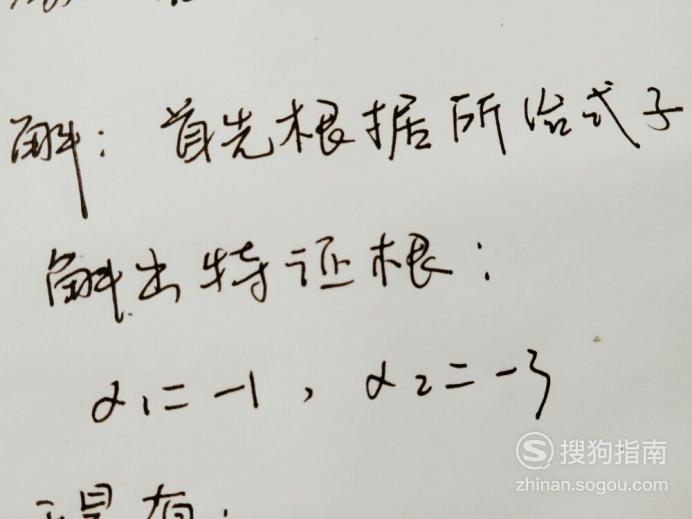 解：首先根据所给式子
解出特证根：
α₁=-1，α₂=-3
搜狗指南
zhinan.sogou.com
有：